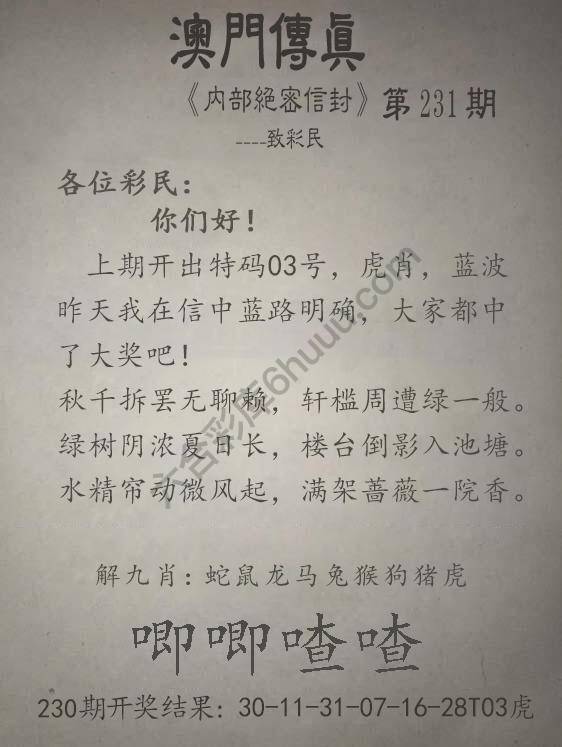 澳門傳真
《内部絕密信封》第231期
----致彩民
各位彩民：
你们好！
上期开出特码03号，虎肖，蓝波
昨天我在信中蓝路明确，大家都中
了大奖吧！
秋千拆罢无聊赖，轩槛周遭绿一般。
绿树阴浓夏日长，楼台倒影入池塘。
水精帘动微风起，满架蔷薇一院香。
解九肖：蛇鼠龙马兔猴狗猪虎
唧唧喳喳
230期开奖结果：30-11-31-07-16-28T03虎
六合彩库6huuu.com